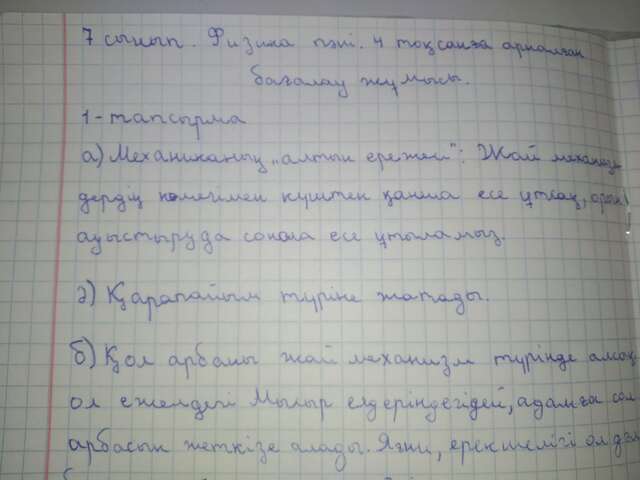 7 сынып. Физика пәні. 4 тоқсанға арналған
бағалау жұмысы.
1-тапсырма
а) Механиканың „алтын ережесі": Жай механизм
дердің көмегімен күштен қанша есе ұтсақ, орын
ауыстыруда сонша есе ұтыламыз.
ә) Қарапайым түріне жатады.
б) Қол арбаны жай механизм түрінде алсақ
ол ежелдегі Мысыр елдеріндегідей, адамға сол
арбасын жеткізе алады. Яғни, ерекшелігі ол